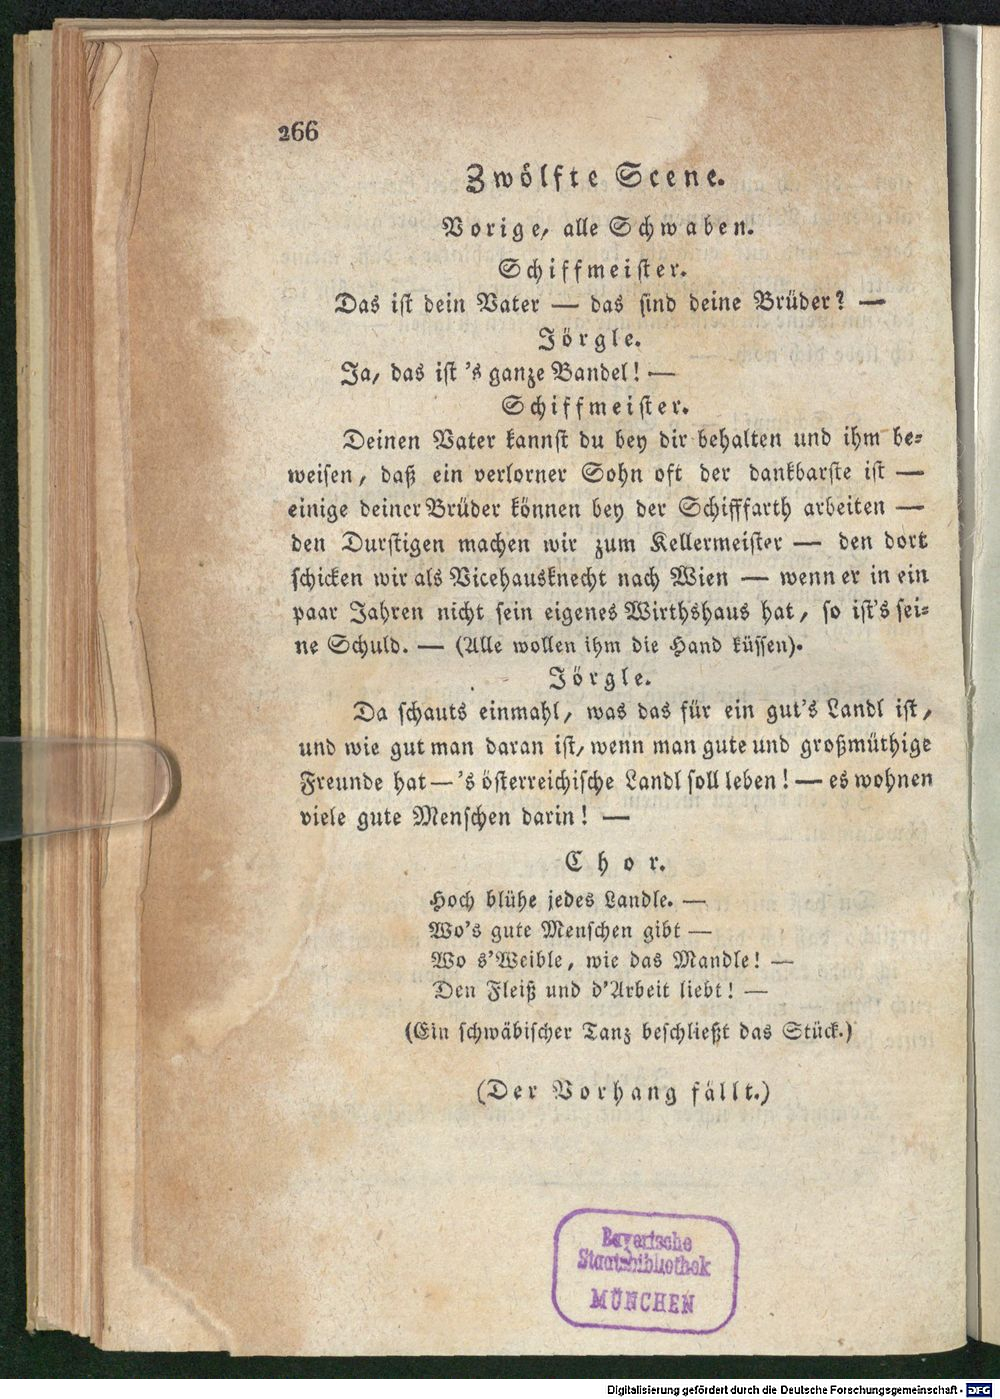 266
Zwölfte Scene.
Vorige, alle Schwaben.
Schiffmeister.
Das ist dein Vater — das sind deine Brüder? —
Jörgle.
Ja, das ist 's ganze Bandel! —
Schiffmeister.
Deinen Vater kannst du bey dir behalten und ihm be-
weisen, daß ein verlorner Sohn oft der dankbarste ist —
einige deiner Brüder können bey der Schifffarth arbeiten —
den Durstigen machen wir zum Kellermeister — den dort
schicken wir als Vicehausknecht nach Wien — wenn er in ein
paar Jahren nicht sein eigenes Wirthshaus hat, so ist's sei-
ne Schuld. — (Alle wollen ihm die Hand küssen).
Jörgle.
Da schauts einmahl, was das für ein gut's Landl ist,
und wie gut man daran ist, wenn man gute und großmüthige
Freunde hat — 's österreichische Landl soll leben! — es wohnen
viele gute Menschen darin! —
Chor.
Hoch blühe jedes Landle. —
Wo's gute Menschen gibt —
Wo s'Weible, wie das Mandle! —
Den Fleiß und d'Arbeit liebt! —
(Ein schwäbischer Tanz beschließt das Stück.)
(Der Vorhang fällt.)
Bayerische
Staatsbibliothek
MÜNCHEN
Digitalisierung gefördert durch die Deutsche Forschungsgemeinschaft - DFG